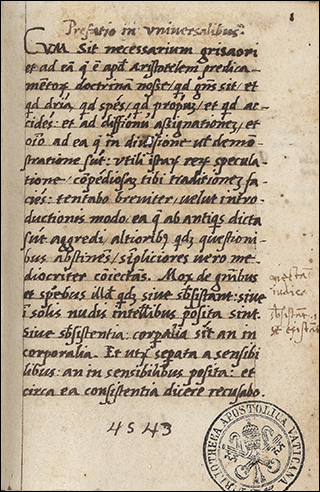 Prefatio in vniversalibus.
CVM Sit necessarium grisaori
et ad eã q̃ ẽ apđ Aristotelem predica-
mẽtoꝝ doctrinam nosse, qđ gñs sit, et
qđ dr̃ia, qđ spẽs, qđ propⁿ, et qđ ac-
cidẽs: et ad diffinıonũ assignationẽ, et
oĩo ad ea q̃ in diuisione ut demõ-
stratione sũt: vtili istaꝝ reꝝ specula
tione, cõpediosaʒ tibi traditioneʒ fa
ciẽs: tentabo breuiter, velut intro-
ductionis modo, ea q̃ ab antiqⁱs dicta
sũt aggredi, altioribꝰ qđʒ questioni-
bus abstinẽs, sĩpliciores vero me-
diocriter cõiectans. Mox de gñibus
et spẽbus illđ qđʒ siue sb̃sistant: siue
ĩ solis nudis intellibus posita sint
siue sb̃sistentia: corpalia sĩt an in
corporalia. Et utꝝ sepata a sensibi
libus: an in sensibilibus posita: et
circa ea consistentia dicere recusabo.
4543
BIBLIOTHECA APOSTOLICA VATICANA